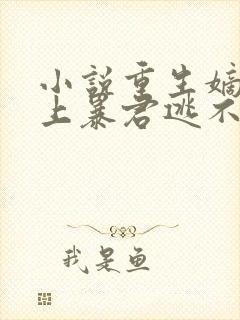 小说重生嫡
上暴君逃不
我是鱼